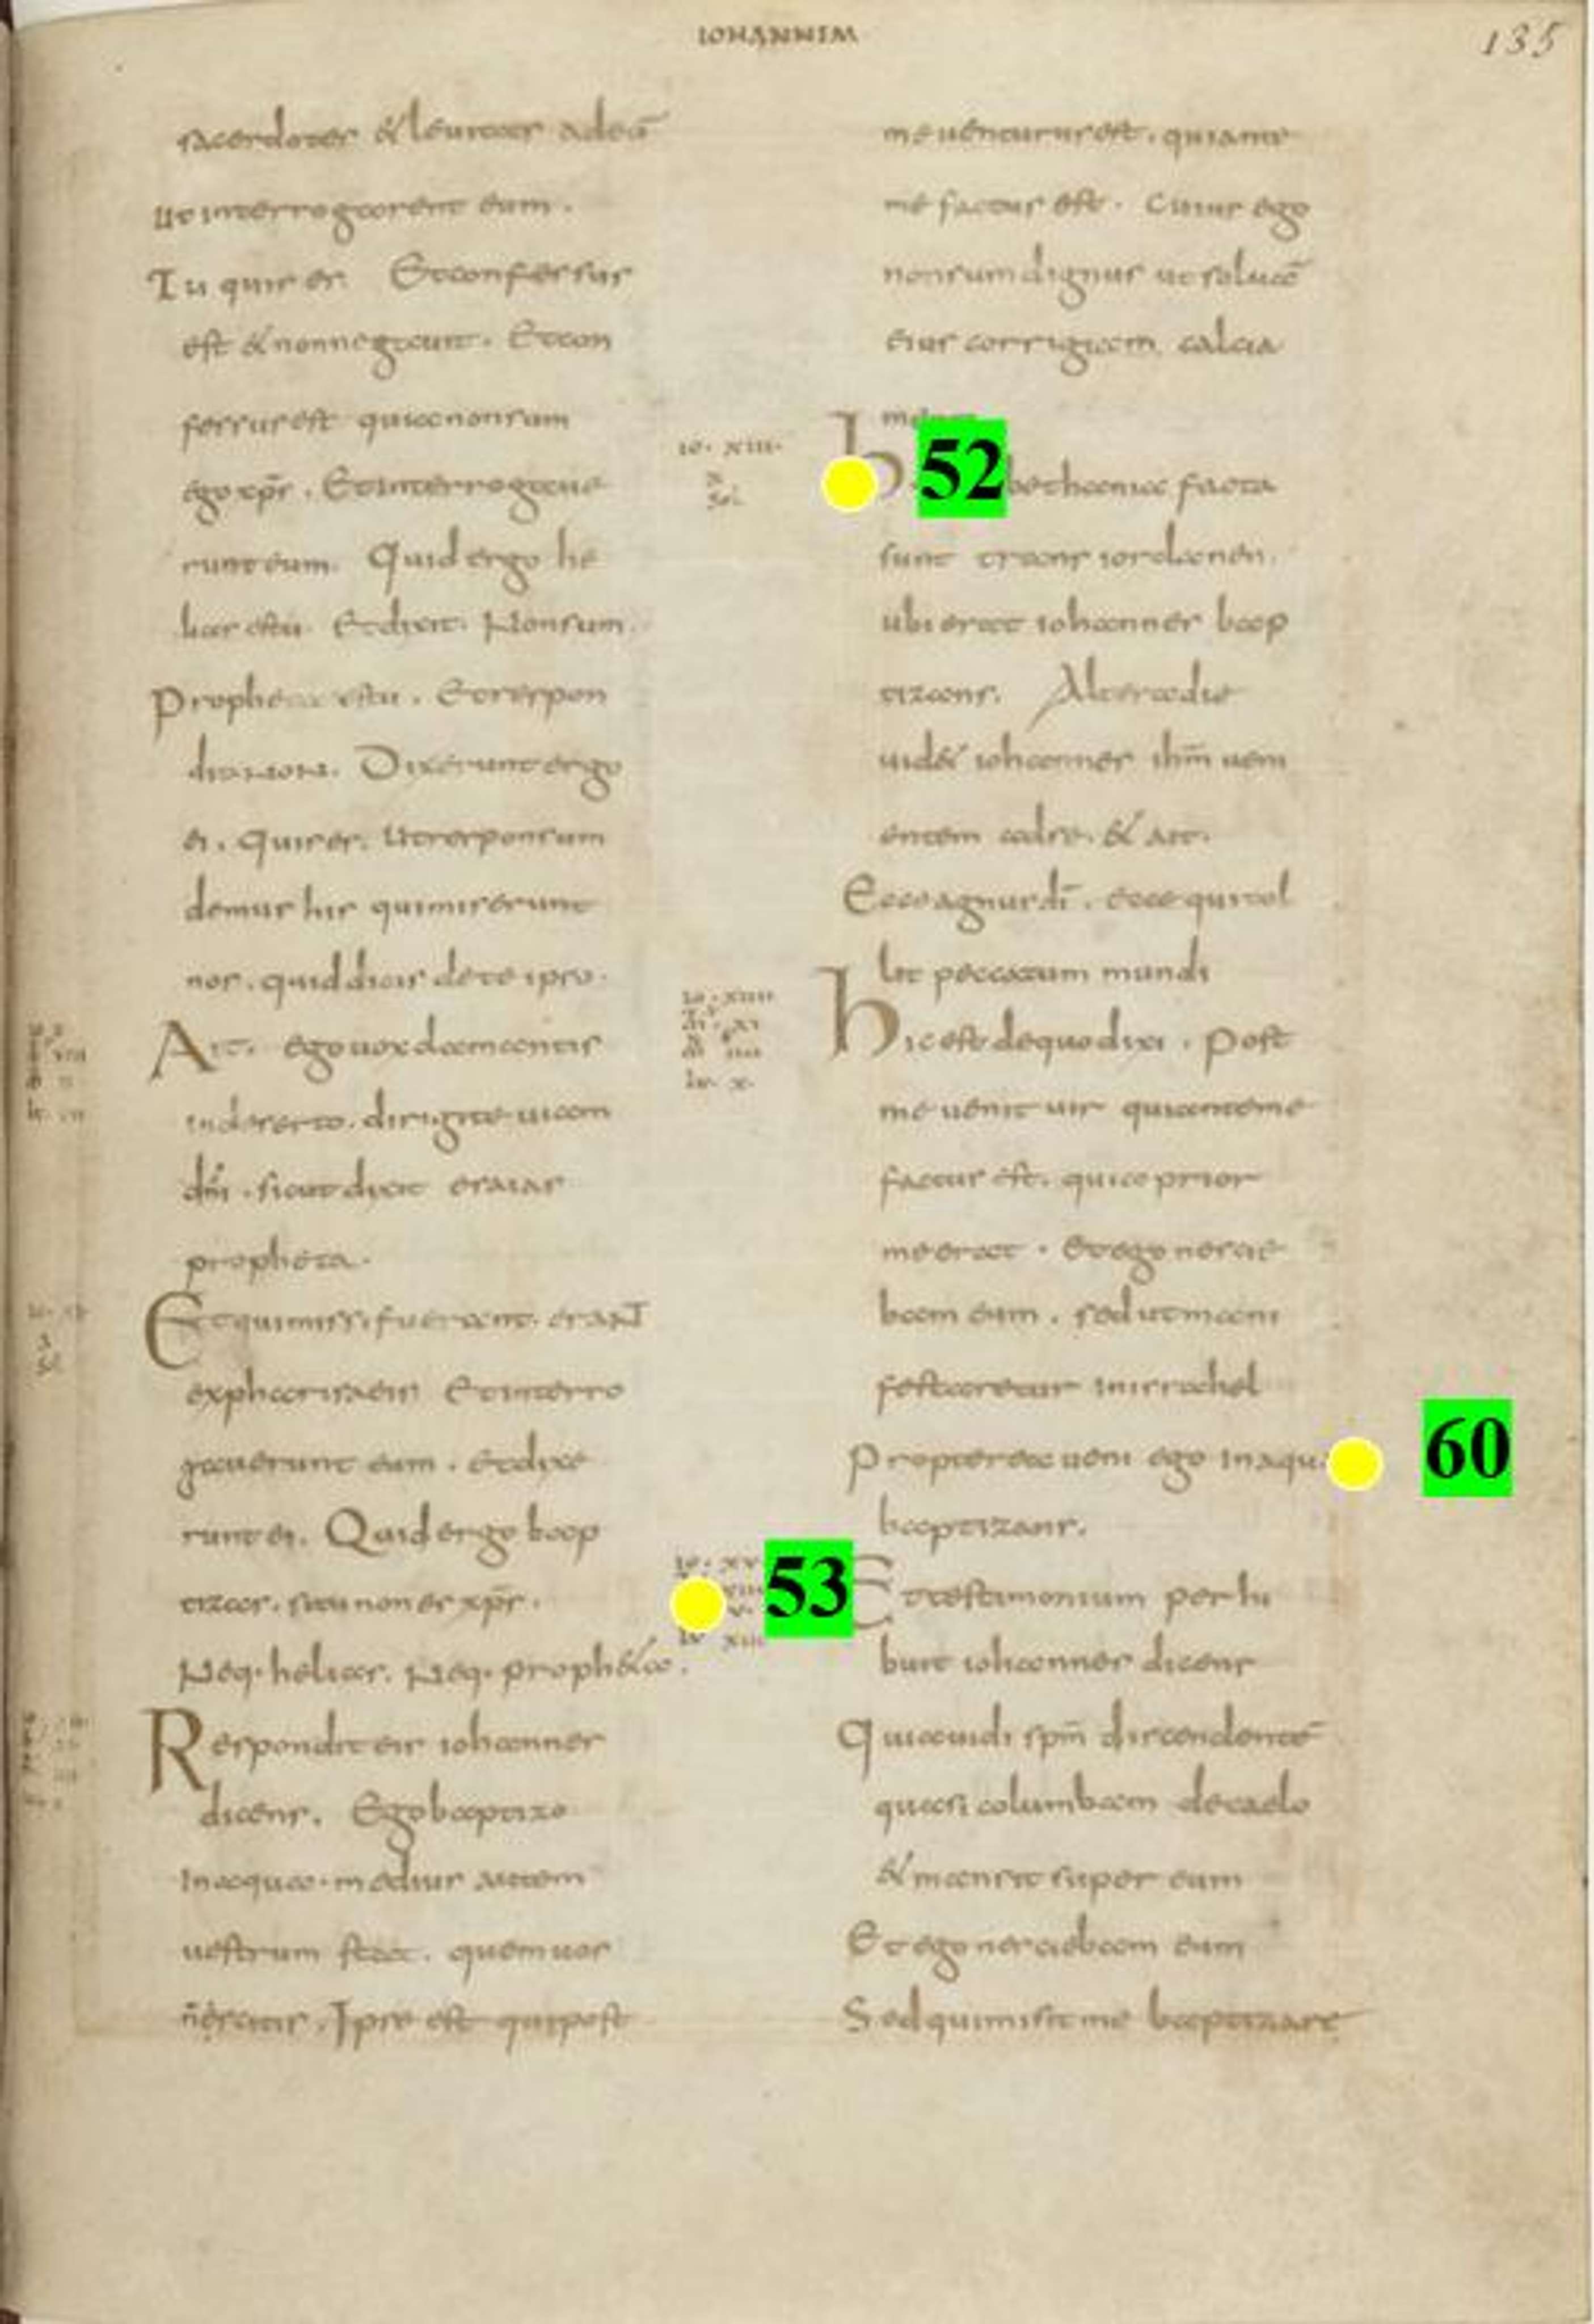 IOHANNIM
135
sacerdotes & leuitas ad eū
ut interrogarent eum.
Tu quis es. Et confessus
est & non negauit. Et con
fessus est quia non sum
ego xp̄s. Et interrogaue
runt eum. Quid ergo he
lias es tu. Et dixit. Non sum.
Propheta es tu. Et respon
dit NON. Dixerunt ergo
ei. Quis es. Ut responsum
demus his qui miserunt
nos. quid dicis de te ipso.
Ait. ego uox clamantis
in deserto. dirigite uiam
dn̄i. sicut dixit esaias
propheta.
Et qui missi fuerant. erant
ex pharisaeis Et interro
gauerunt eum. et dixe
runt ei. Quid ergo bap
tizas. si tu non es xp̄s.
Neq. helias. Neq. proph&a.
Respondit eis iohannes
dicens. Ego baptizo
in aqua. medius autem
uestrum stat. quem uos
n̄ scitis. Ipse est qui post
me uenturus est. qui ante
me factus est. Cuius ego
non sum dignus ut soluā
eius corrigiam calcia
io. XIII.
X
52
bethania facta
sunt trans iordanen.
ubi erat iohannes bap
tizans. Altera die
uid& iohannes ihm̄ ueni
entem ad se. & ait.
Ecce agnus dī. ecce qui tol
lit peccatum mundi
io. XIIII
lu. X.
Hic est de quo dixi. Post
me uenit uir qui ante me
factus est. quia prior
me erat. et ego nescie
bam eum. sed ut mani
festaretur in israhel
Propterea ueni ego in aqu
60
baptizans.
io. XV
53
Et testimonium perhi
buit iohannes dicens
Quia uidi sp̄m discendentē
quasi columbam de caelo
& mansit super eum
Et ego nesciebam eum
Sed qui misit me baptizare